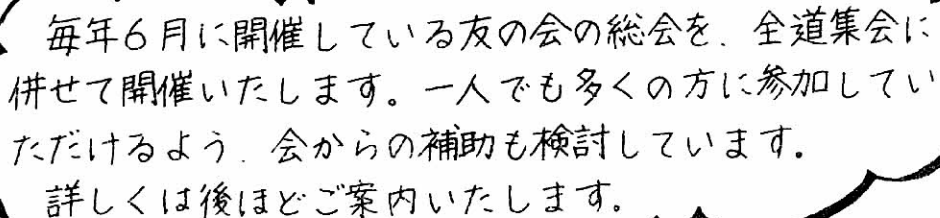 毎年6月に開催している友の会の総会を、全道集会に
併せて開催いたします。一人でも多くの方に参加してい
ただけるよう、会からの補助も検討しています。
詳しくは後ほどご案内いたします。